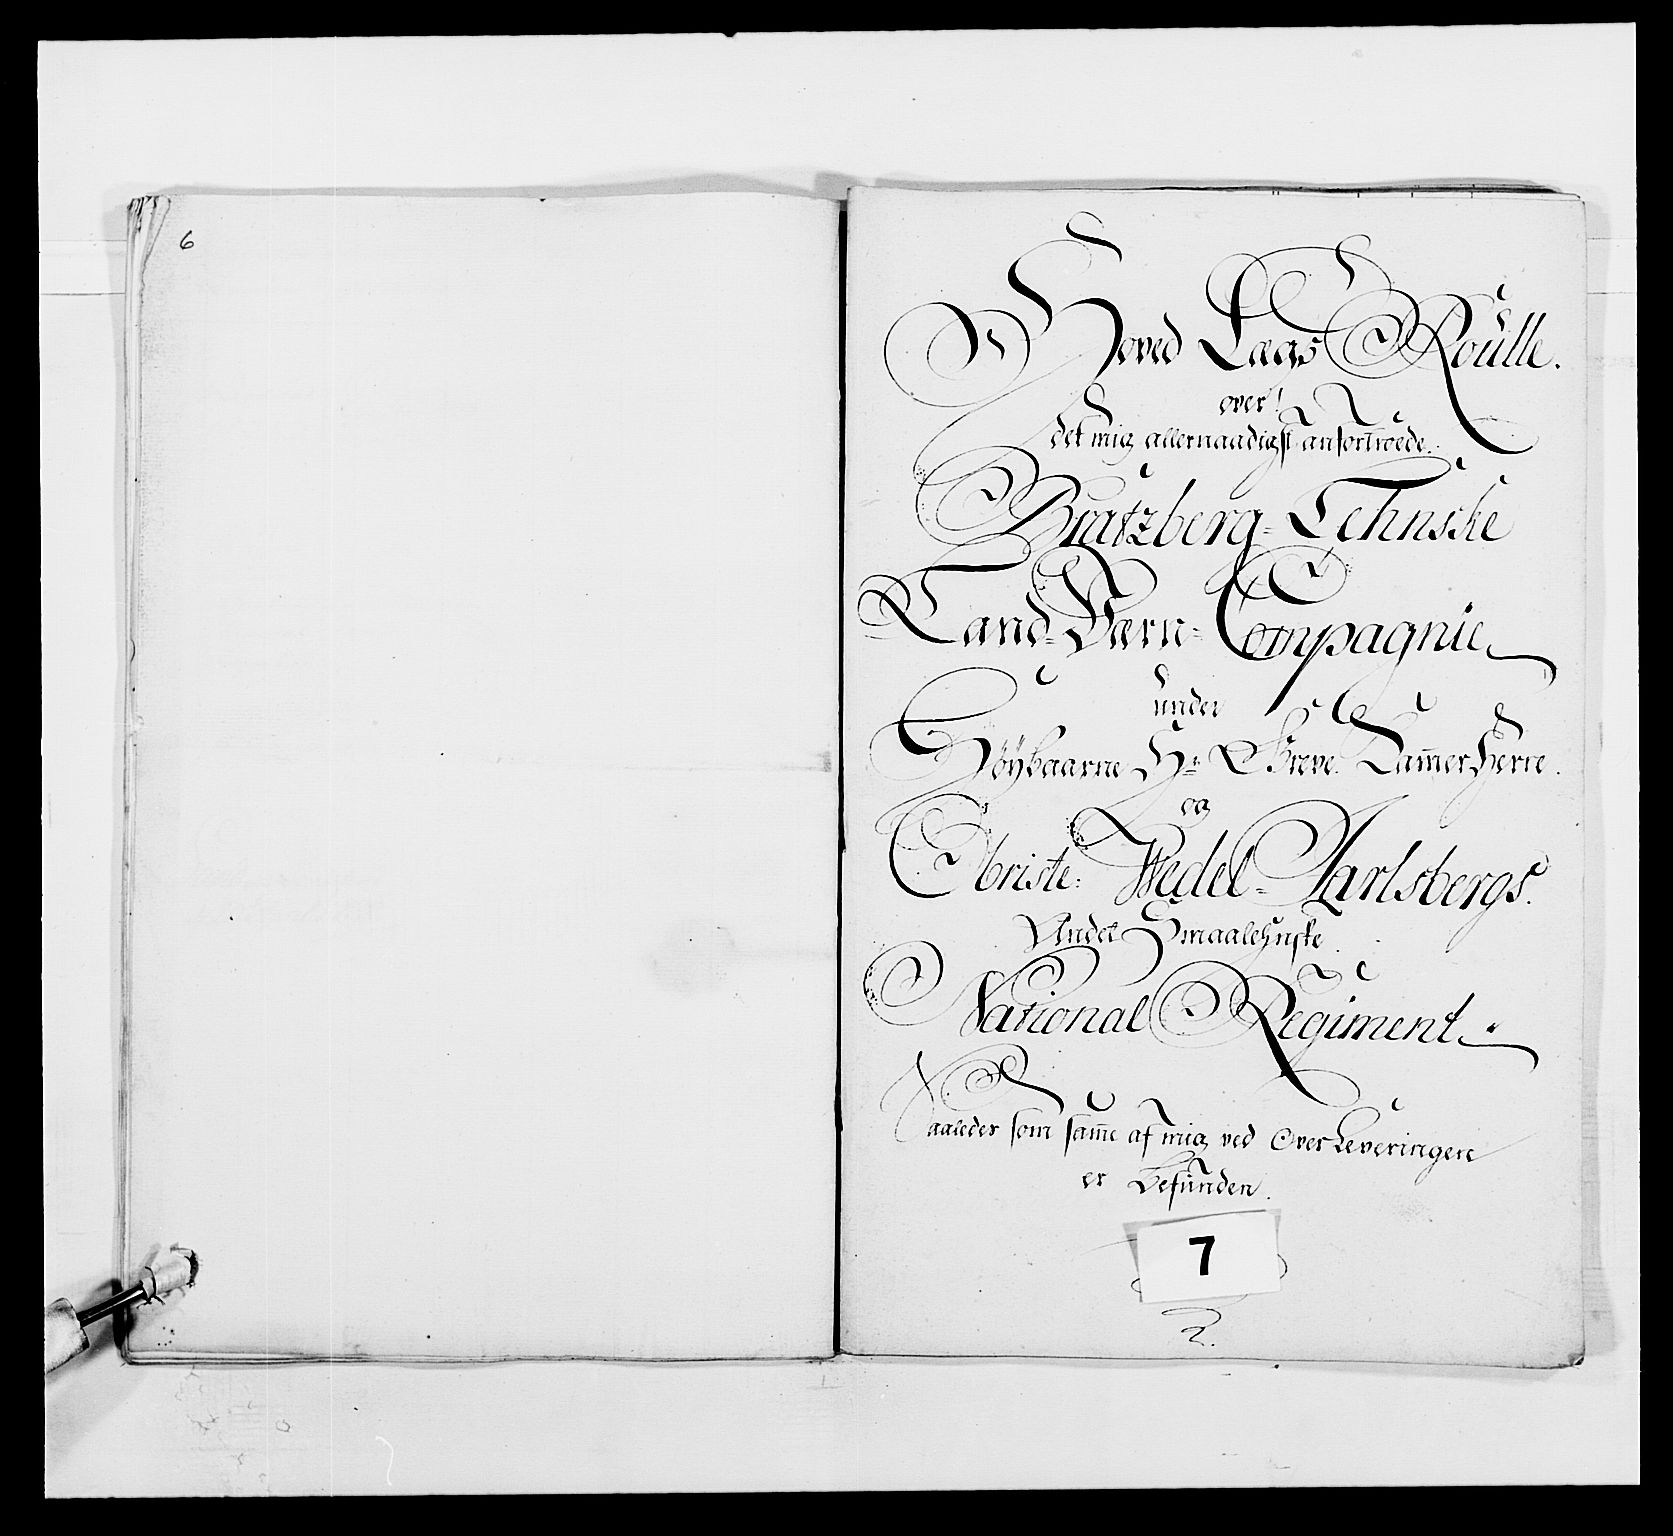 6
Hoved Lægs Roulle.
over!
det mig allernaadigst anfortroede.
Bratzberg-Lehnske
Land-Værn-Compagnie
under
Höybaarne Hr. Greve Cam̄erHerre.
og
Obriste: Wedel-Jarlsbergs.
Andet Smaalehnske
National Regiment
Saaledes som sam̄e af mig ved OverLeveringen
er befunden.
7